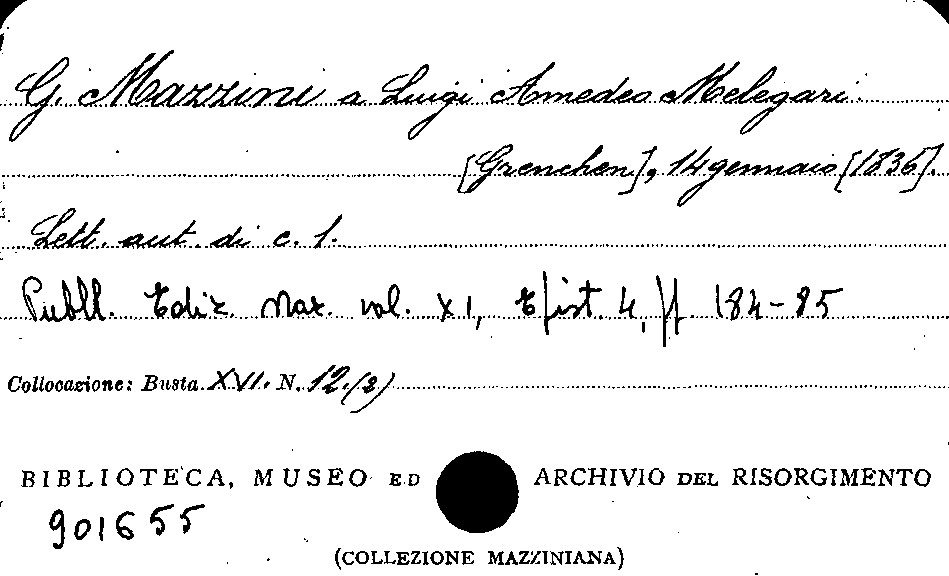 G. Mazzini a Luigi Amedeo Melegari.
[Grenchen], 14 gennaio [1836].
Lett. aut. di c. 1.
Pubbl. Ediz. Naz. vol. XI, Epist. 4, pp. 184-85
Collocazione: Busta XVI. N. 12.(2)
BIBLIOTECA, MUSEO ED ARCHIVIO DEL RISORGIMENTO
901655
(COLLEZIONE MAZZINIANA)